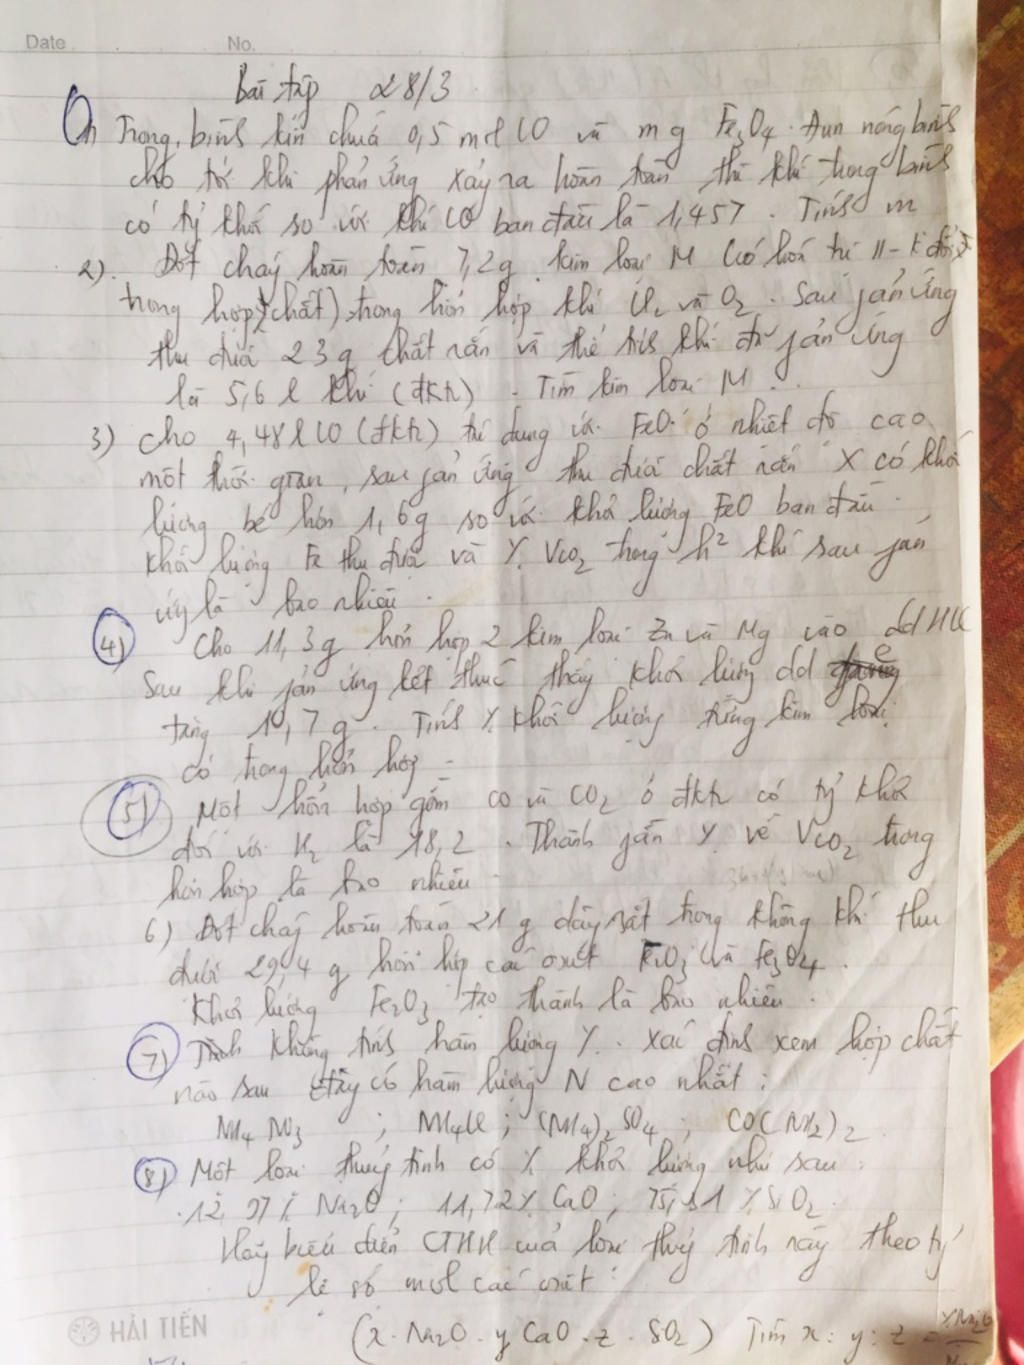 Date No.
Bài tập 28/3
1) Trong bình kín chứa 0,5 mol CO và m g Fe3O4. Đun nóng bình
cho tới khi phản ứng xảy ra hoàn toàn thì khí trong bình
có tỷ khối so với khí CO ban đầu là 1,457. Tính m
2). Đốt cháy hoàn toàn 7,2g kim loại M (có hoá trị II - k đổi
trong hợp chất) trong hỗn hợp khí Cl2 và O2. Sau fản ứng
thu được 23g chất rắn và thể tích khí đã fản ứng
là 5,6 l khí (đktc). Tìm kim loại M.
3) Cho 4,48 l CO (đktc) tác dụng với FeO ở nhiệt độ cao
một thời gian, sau fản ứng thu được chất rắn X có khối
lượng bé hơn 1,6g so với khối lượng FeO ban đầu.
Khối lượng Fe thu được và % VCO2 trong h2 khí sau fản
ứng là bao nhiêu.
4) Cho 11,3g hỗn hợp 2 kim loại Zn và Mg vào dd HCl
Sau khi fản ứng kết thúc thấy khối lượng dd
tăng 10,7g. Tính % khối lượng từng kim loại
có trong hỗn hợp -
5) Một hỗn hợp gồm CO và CO2 ở đktc có tỷ khối
đối với H2 là 18,2. Thành fần % về VCO2 trong
hỗn hợp là bao nhiêu
6) Đốt cháy hoàn toàn 21 g dây sắt trong không khí thu
được 29,4 g hỗn hợp các oxit Fe2O3 và Fe3O4.
Khối lượng Fe2O3 tạo thành là bao nhiêu.
7) Không tính hàm lượng %. Xác định xem hợp chất
nào sau đây có hàm lượng N cao nhất:
NH4NO3 ; NH4Cl ; (NH4)2SO4 ; CO(NH2)2
8) Một loại thuỷ tinh có % khối lượng như sau:
12,97% Na2O; 11,72% CaO; 75,31 % SiO2.
Hãy biểu diễn CTHH của loại thuỷ tinh này theo tỷ
lệ số mol các oxit:
HẢI TIẾN
(x. Na2O. y CaO. z. SiO2) Tìm x: y: z = %Na2O